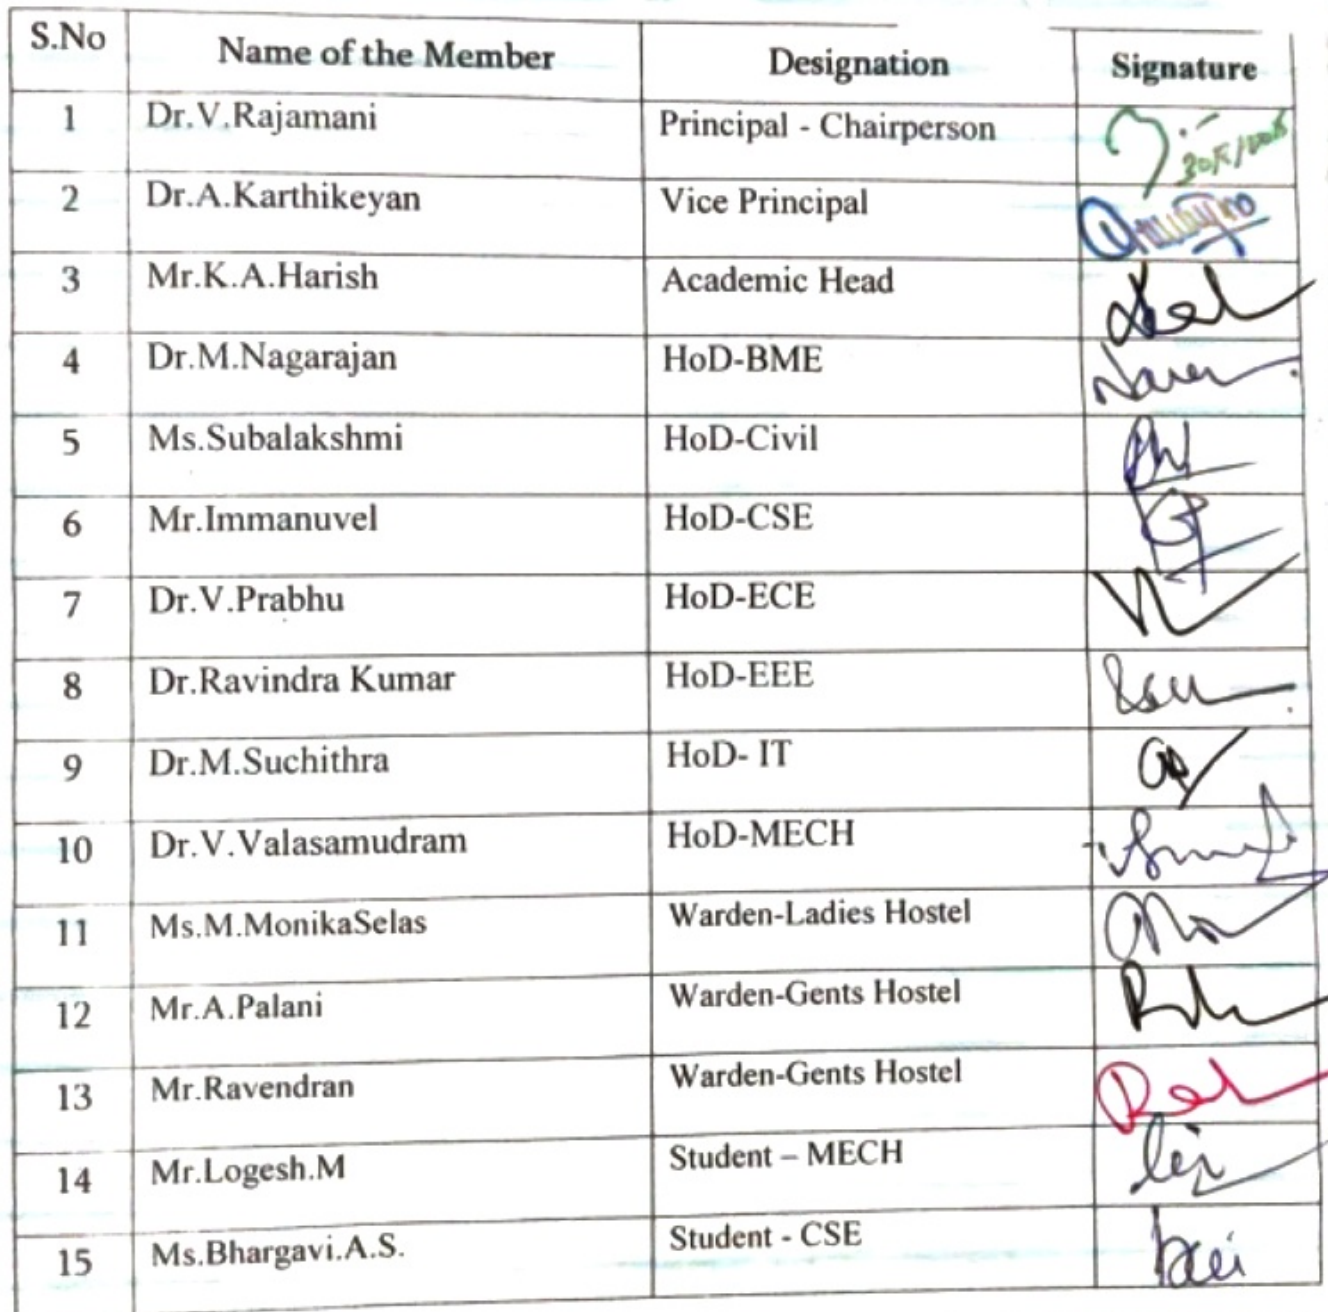 S.No Name of the Member Designation Signature
1 Dr.V.Rajamani Principal - Chairperson
2 Dr.A.Karthikeyan Vice Principal
3 Mr.K.A.Harish Academic Head
4 Dr.M.Nagarajan HoD-BME
5 Ms.Subalakshmi HoD-Civil
6 Mr.Immanuvel HoD-CSE
7 Dr.V.Prabhu HoD-ECE
8 Dr.Ravindra Kumar HoD-EEE
9 Dr.M.Suchithra HoD- IT
10 Dr.V.Valasamudram HoD-MECH
11 Ms.M.MonikaSelas Warden-Ladies Hostel
12 Mr.A.Palani Warden-Gents Hostel
13 Mr.Ravendran Warden-Gents Hostel
14 Mr.Logesh.M Student – MECH
15 Ms.Bhargavi.A.S. Student - CSE